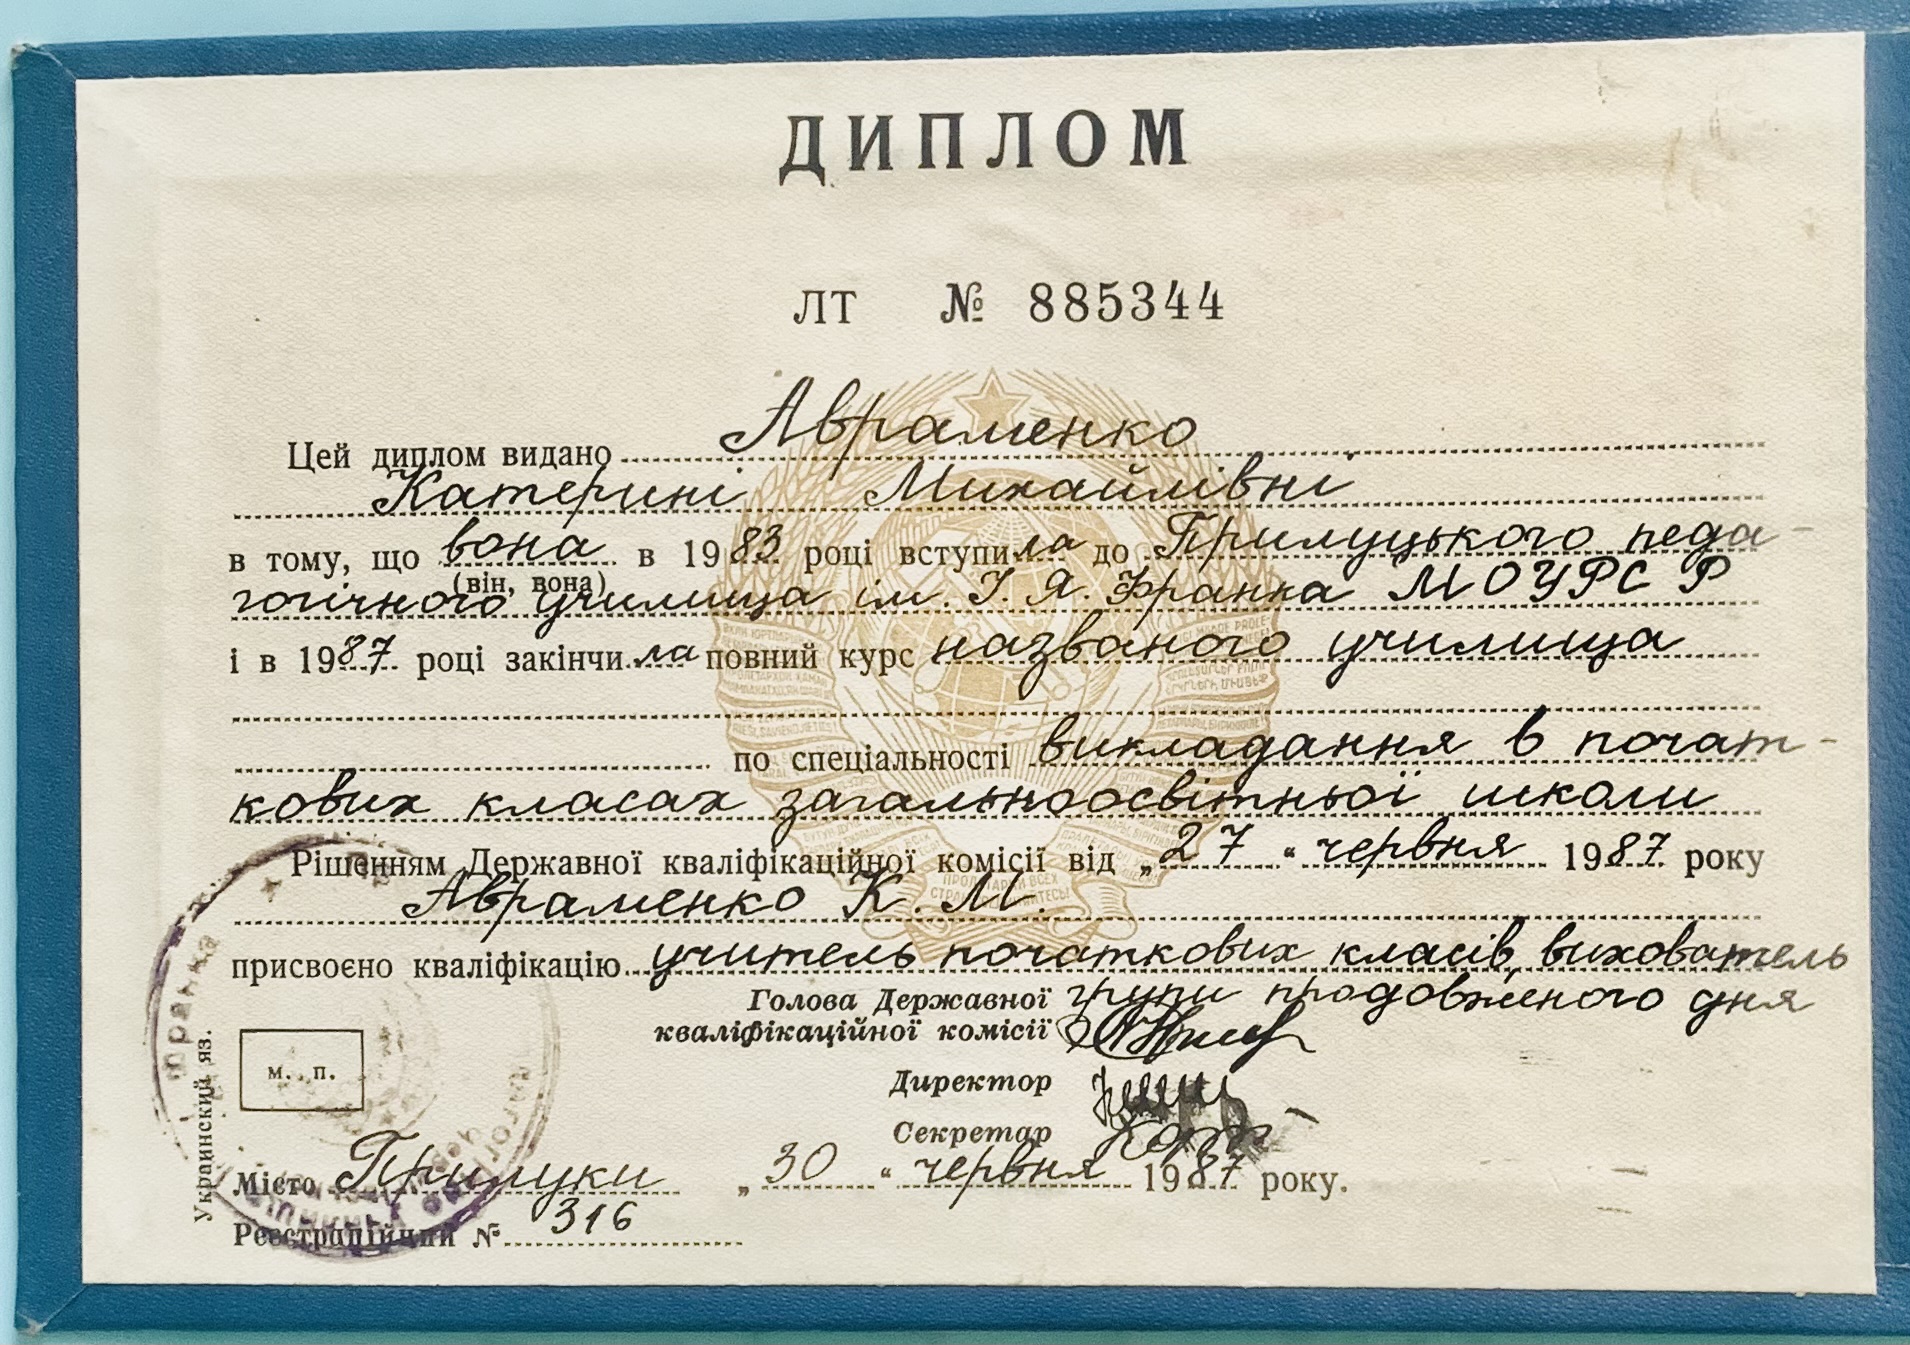 ДИПЛОМ
ЛТ № 885344
Цей диплом видано Авраменко
Катерині Михайлівні
в тому, що вона в 1983 році вступила до Прилуцького педа-
(він, вона)
гогічного училища ім. І. Я. Франка МОУРСР
і в 1987 році закінчила повний курс названого училища
по спеціальності викладання в почат-
кових класах загальноосвітньої школи
Рішенням Державної кваліфікаційної комісії від „27“ червня 1987 року
Авраменко К. М.
присвоєно кваліфікацію учитель початкових класів, вихователь
Голова Державної групи продовженого дня
кваліфікаційної комісії
Директор
Секретар
м. п.
Місто Прилуки „30“ червня 1987 року.
Реєстраційний № 316
Украинский яз.
Франка